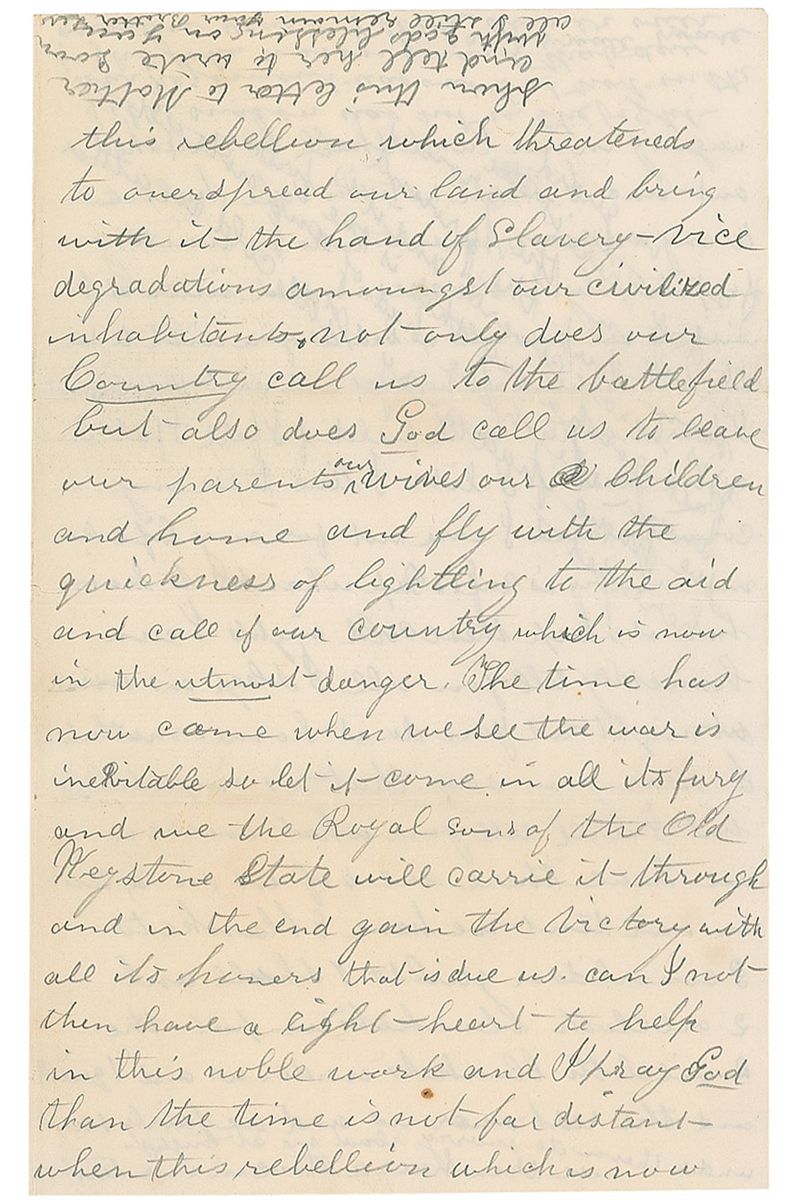 Shew this letter to Mother
and tell her to write Soon
with gods blessing on you
all I still remain your Brother
this rebellion which threateneds
to overspread our land and bring
with it the hand of Slavery - vice
degradations amoungst our civilized
inhabitants, not only does our
Country call us to the battlefield
but also does God call us to leave
our parents our wives our Children
and home and fly with the
quickness of lightling to the aid
and call of our country which is now
in the utmost danger. The time has
now come when we see the war is
inevitable so let it come in all its fury
and we the Royal sons of the Old
Keystone State will carrie it through
and in the end gain the Victory with
all its honers that is due us. can I not
then have a light heart to help
in this noble work and I pray God
than the time is not far distant
when this rebellion which is now